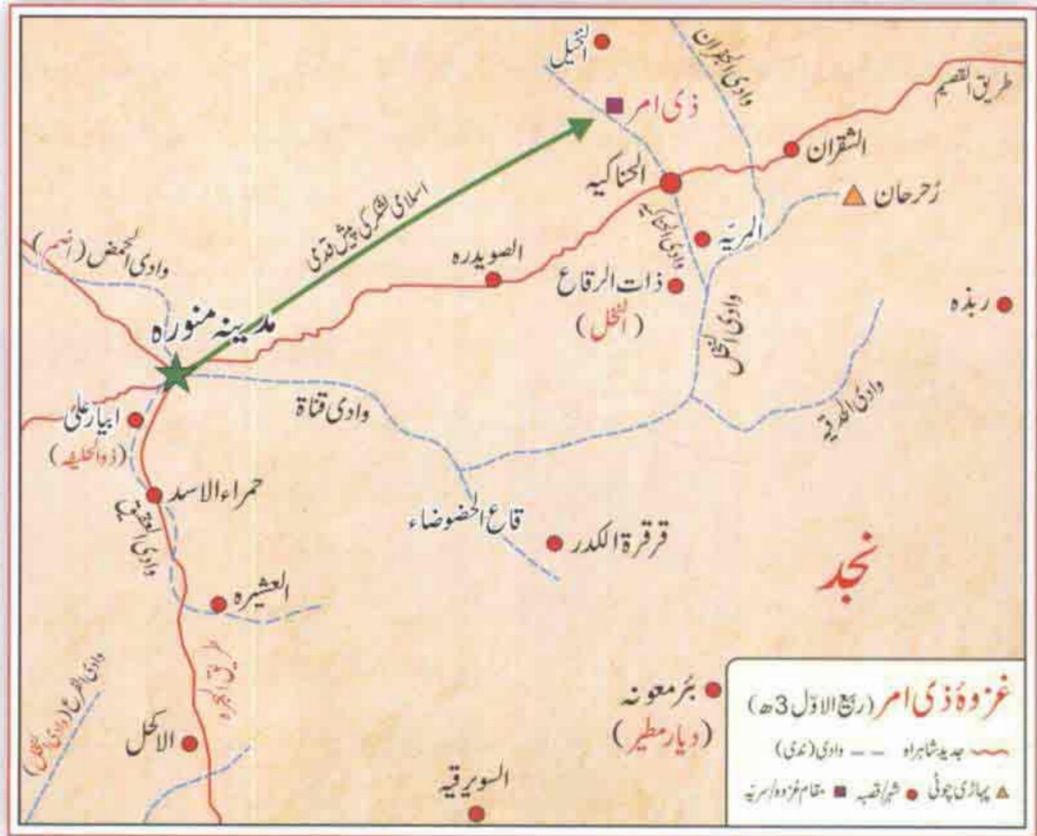 النخیل
وادی الجفران
طریق القصیم
ذی امر
الشقران
الحناکیہ
رُحرحان
اسلامی لشکر کی پیش قدمی
وادی الحناکیہ
الہریّہ
الصویدرہ
وادی الحمض (اضم)
ذات الرقاع
(النخل)
ربذہ
مدینہ منورہ
وادی النخل
وادی قناۃ
ابیار علی
(ذوالحلیفہ)
حمراء الاسد
وادی العقیق
قاع الحضوضاء
قرقرۃ الکدر
نجد
العشیرہ
طریق الہجرہ
وادی الفرع (وادی النخل)
بئر معونہ
(دیار مطیر)
الاکحل
السویرقیہ
غزوۂ ذی امر (ربیع الاوّل 3ھ)
جدید شاہراہ
وادی (ندی)
پہاڑی چوٹی
شہر/قصبہ
مقام غزوہ/سریّہ